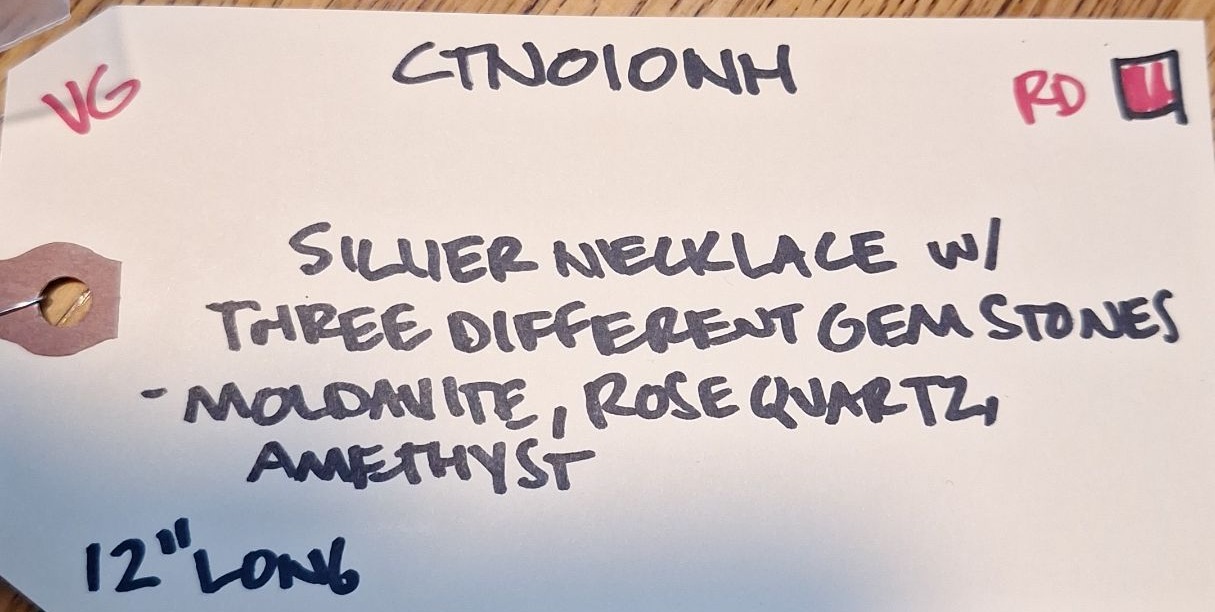 VG
CTNO1ONH
RD
SILVER NECKLACE W/
THREE DIFFERENT GEM STONES
- MOLDAVITE, ROSE QUARTZ,
AMETHYST
12" LONG